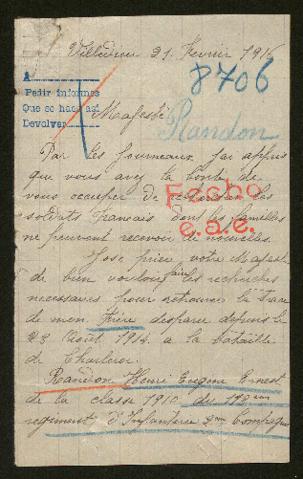 Villedieu 21 Fevrier 1916
8706
Pedir informes
Que se haga asi
Devolver
Majesté
Randon
Par les journeaux j'ai appris
que vous avez la bonté de
vous occuper de rechercher les
soldats français dont les familles
ne peuvent recevoir de nouvelles.
Fecho
e.a.e.
J'ose prier votre Majesté
de bien vouloir faire les recherches
necessaires pour retrouver la trace
de mon Frère disparu depuis le
23 Aout 1914 a la bataille
de Charleroi.
Randon Henri Eugene Ernest
de la classe 1910 du
regiment d'Infanterie 2me Compagnie